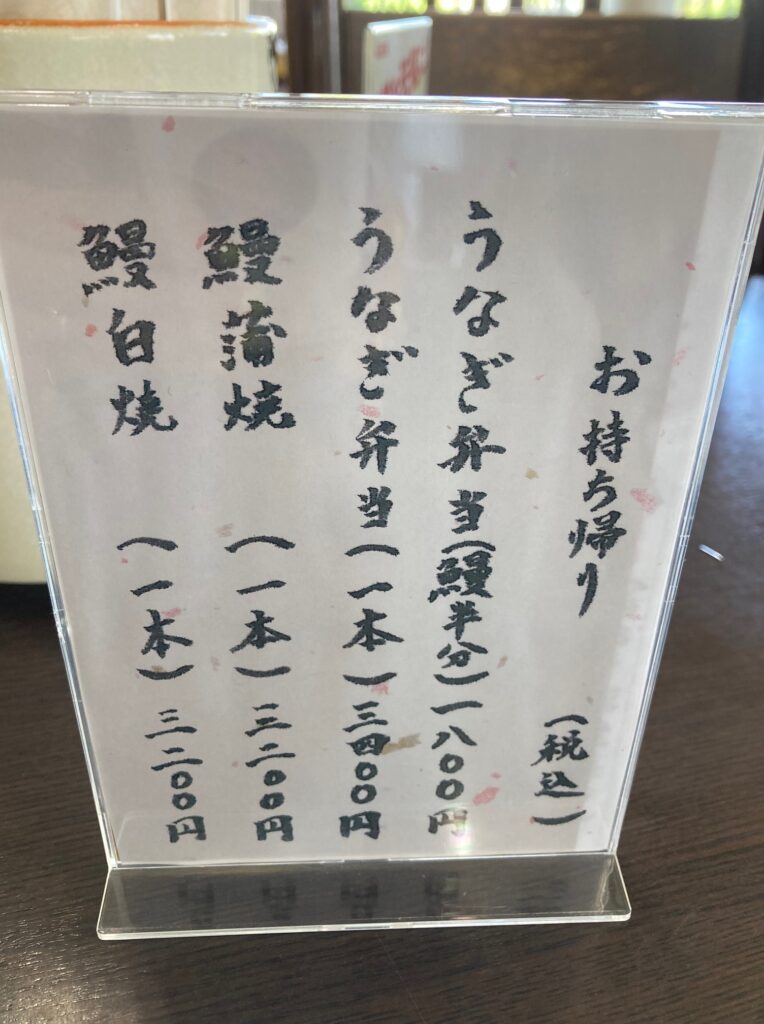 お持ち帰り (税込)
うなぎ弁当(鰻半分)一八〇〇円
うなぎ弁当(一本)三四〇〇円
鰻蒲焼 (一本)三二〇〇円
鰻白焼 (一本)三二〇〇円